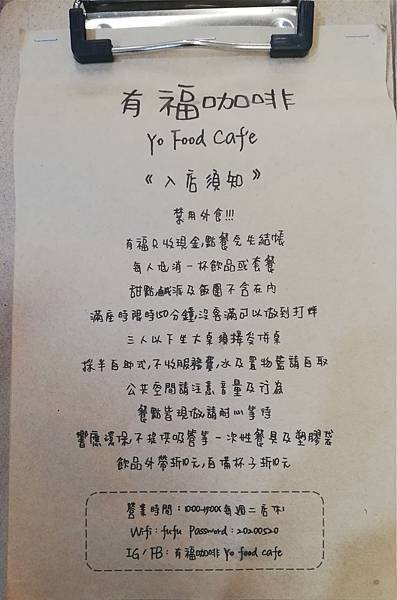 有福咖啡
Yo Food Cafe
《入店須知》
禁用外食!!!
有福只收現金,點餐完先結帳
每人低消一杯飲品或套餐
甜點,鹹派及飯團不含在內
滿座時限時150分鐘,沒客滿可以做到打烊
三人以下坐大桌須接受併桌
採半自助式,不收服務費,水及置物籃請自取
公共空間請注意音量及行為
餐點皆現做,請耐心等待
響應環保,不提供吸管等一次性餐具及塑膠袋
飲品外帶折10元,自備杯子折10元
營業時間:1000-1900X每週二店休!
Wifi:fufu Password:20200520
IG/FB:有福咖啡 Yo food cafe